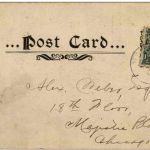 ...Post Card...
Alex. Nelso Esq
18th Floor,
Majestic Bl
Chicago